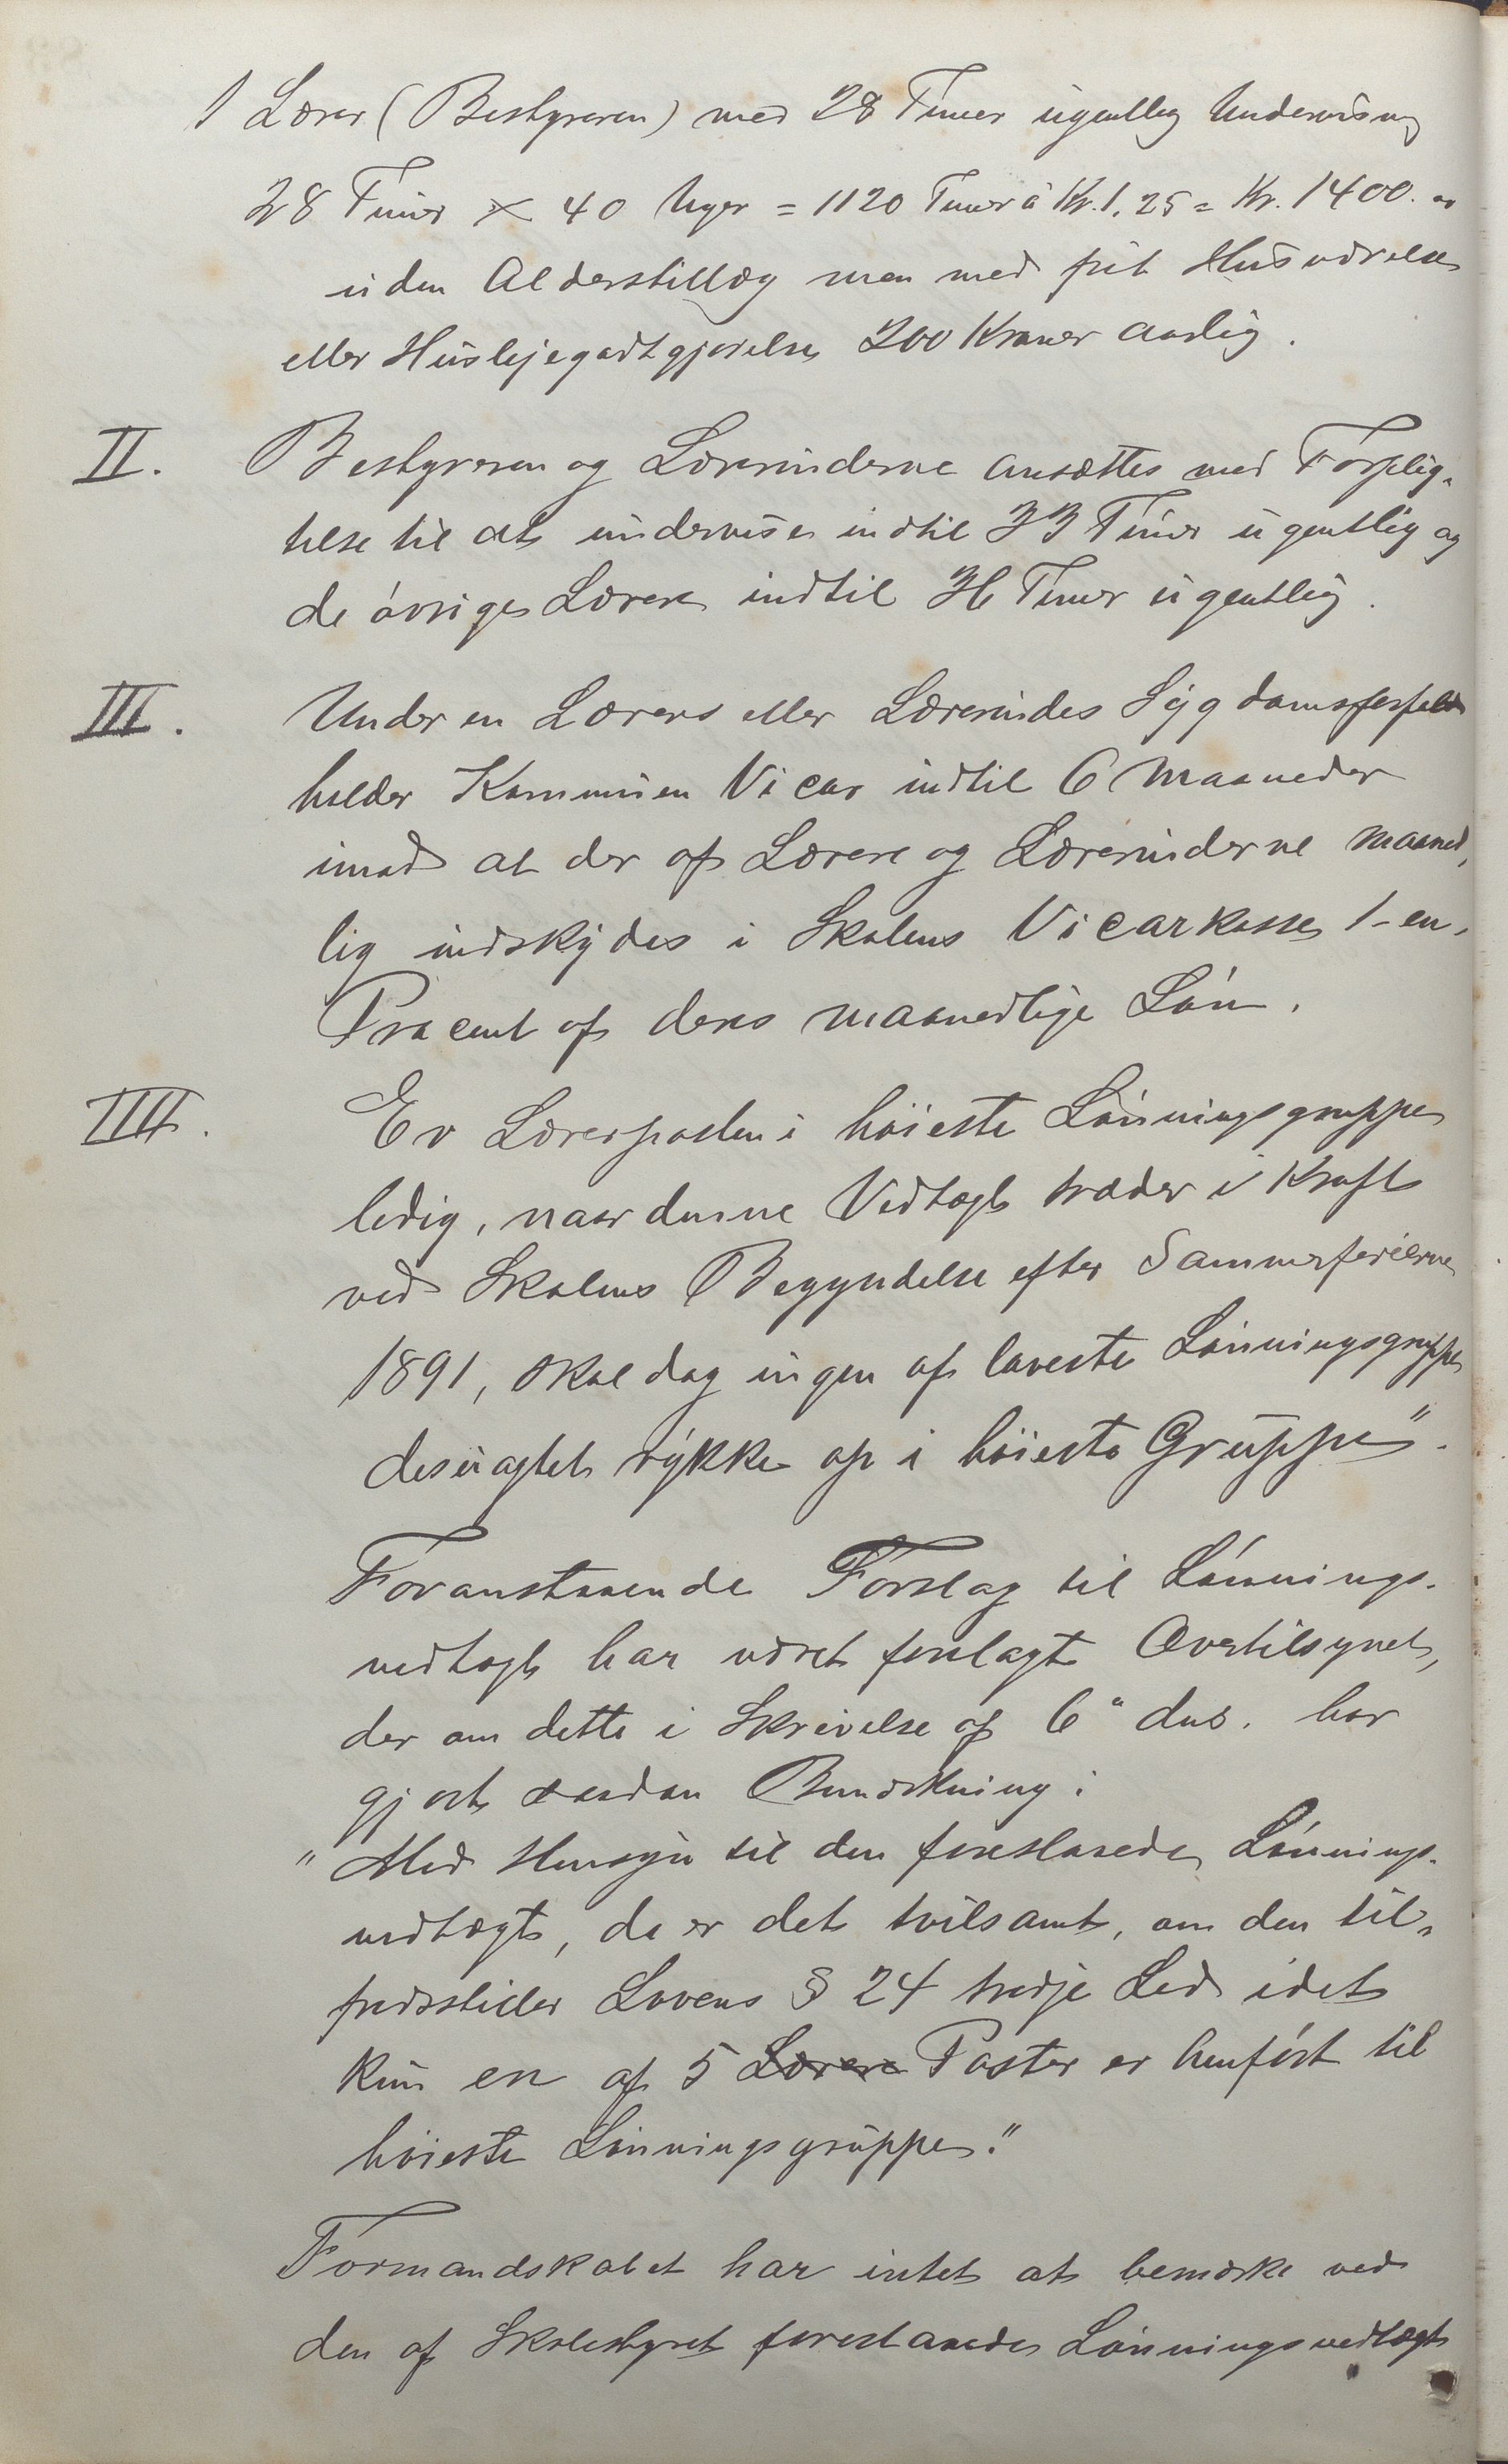 1 Lærer (Bestyreren) med 28 Timer ugentlig Undervisning
28 Timer × 40 Uger = 1120 Timer à Kr. 1,25 = Kr. 1400.
uden Alderstillæg men med frit Husværelse
eller Huslejegodtgjørelse 200 Kroner aarlig.
II. Bestyreren og Lærerinderne ansættes med Forplig-
telse til at undervise indtil 33 Timer ugentlig og
de øvrige Lærere indtil 36 Timer ugentlig.
III. Under en Lærers eller Lærerindes Sygdomsforfald
holder Kommunen Vicar indtil 6 Maaneder
imod at der af Lærere og Lærerinderne maaned-
lig indskydes i Skolens Vicarkasse 1-en-
Procent af deres maanedlige Løn.
IIII. Er Lærerposten i høieste Lønningsgruppe
ledig, naar denne Vedtægt træder i Kraft
ved Skolens Begyndelse efter Sommerferierne
1891, skal dog ingen af laveste Lønningsgruppe
desuagtet rykke op i høieste Gruppe".
Foranstaaende Forslag til Lønnings-
vedtægt har været forelagt Overtilsynet,
der om dette i Skrivelse af 6" ds. har
gjort saadan Bemærkning:
"Med Hensyn til den foreslaaede Lønnings-
vedtægt, da er det tvilsomt, om den til-
fredsstiller Lovens § 24 tredje Led idet
kun en af 5 Lærere Poster er henført til
høieste Lønningsgruppe."
Formandskabet har intet at bemærke ved
den af Skolestyret foreslaaede Lønningsvedtægt